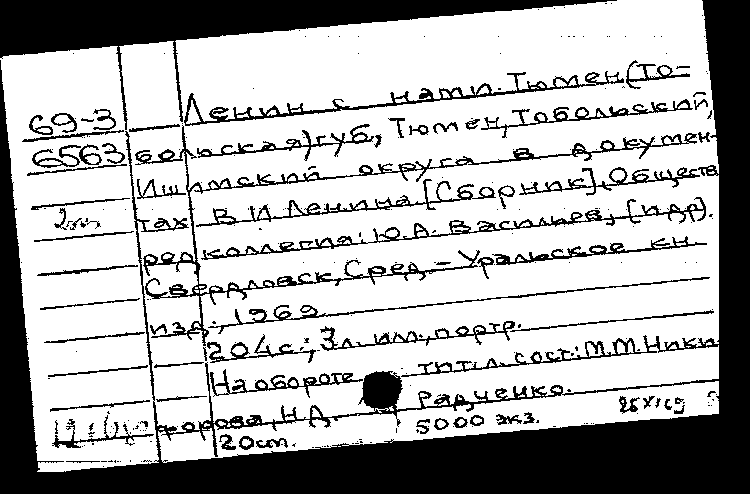 69-3
6563
Ленин с нами. Тюмен(То=
больская) губ., Тюмен, Тобольский,
Ишимский округа в докумен-
тах В.И.Ленина. [Сборник]. Обществ
ред коллегия: Ю.А. Васильев, [и др].
Свердловск, Сред.-Уральское кн.
изд., 1969
204с.; 3л. илл., портр.
На обороте тит. л. сост.: М.М. Ники
форова, Н.Д. Радченко.
20см. 5000 экз. 25 X 69